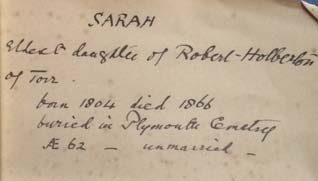 SARAH
Eldest daughter of Robert Holberton
of Torr.
born 1804 died 1866
buried in Plymouth Cemetery
Æ 62 — unmarried —